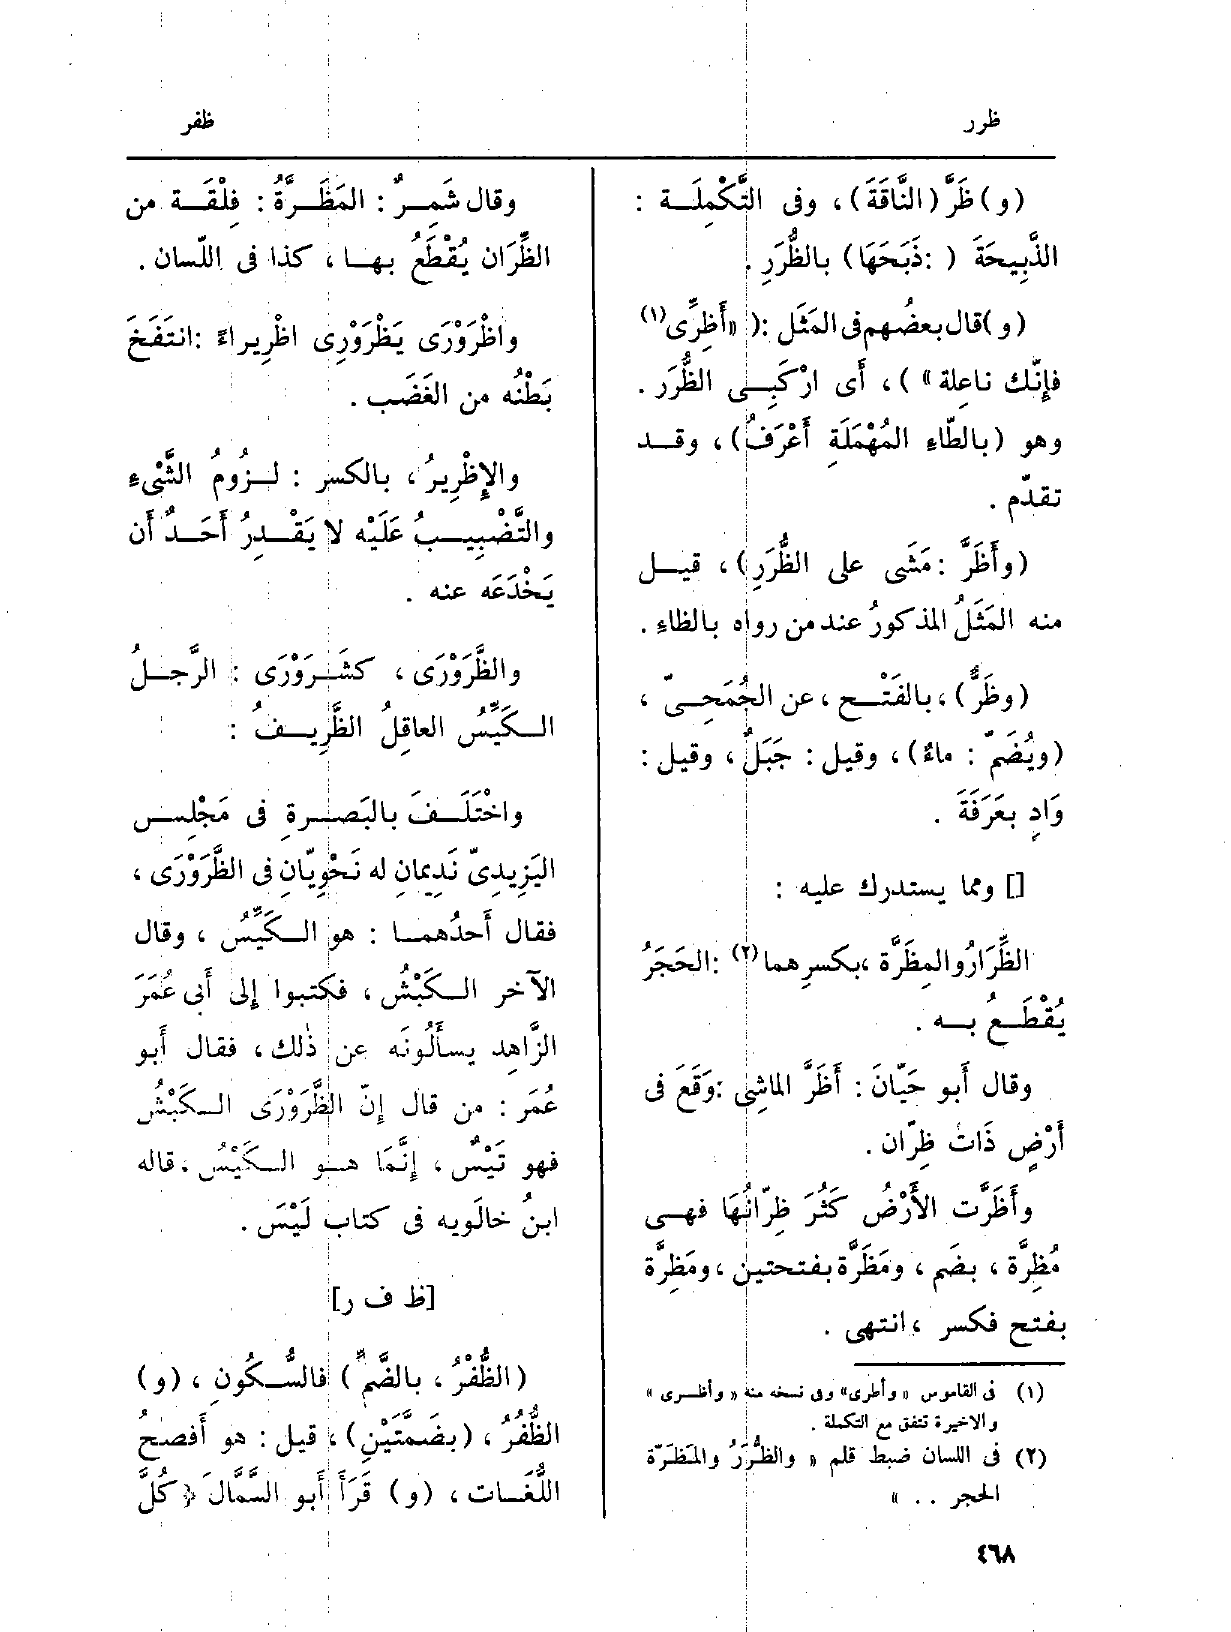 ظرر
ظفر
(و) ظَرَّ (النَّاقَةَ) ، وفى التَّكْمِلَة :
الذَّبِيحَةَ ( : ذَبَحَهَا) بالظُّرَرِ .
(و) قال بعضُهم فى المَثَل : ( « أَظِرِّى (١)
فإِنّك ناعِلة » ) ، أَى ارْكَبِى الظُّرَر .
وهو (بالطَّاءِ المُهْمَلَةِ أَعْرَفُ) ، وقد
تقدّم .
(وأَظَرَّ : مَشَى على الظُّرَرِ) ، قيل
منه المَثَلُ المذكورُ عند من رواه بالظاءِ .
(وظَرٌّ) ، بالفَتْح ، عن الجُمَحِىّ ،
(ويُضَمّ : ماءٌ) ، وقيل : جَبَلٌ ، وقيل :
وَادٍ بعَرَفَةَ .
[] ومما يستدرك عليه :
الظِّرَارُ والمِظَرَّة ، بكسرِهما (٢) : الحَجَرُ
يُقْطَعُ به .
وقال أَبو حَيّانَ : أَظَرَّ الماشِى : وَقَعَ فى
أَرْضٍ ذَات ظِرّان .
وأَظَرَّت الأَرْضُ كَثُرَ ظِرّانُهَا فهى
مُظِرَّة ، بضَم ، ومَظَرَّة بفتحتين ، ومَظِرَّة
بفتح فكسر ، انتهى .
(١) فى القاموس « وأطرى » وفى نسخه منه « وأظرى »
والاخيرة تتفق مع التكملة .
(٢) فى اللسان ضبط قلم « والظُّرَرُ والمَظَرّة
الحجر . . »
وقال شَمِرٌ : المَظَرَّةُ : فِلْقَة من
الظِّرَّان يُقْطَعُ بها ، كذا فى اللّسان .
واظْرَوْرَى يَظْرَوْرِى اظْرِيراءً : انتَفَخَ
بَطْنُه من الغَضَب .
والإِظْرِيرُ ، بالكسر : لُزُومُ الشَّىْءِ
والتَّضْبِيبُ عَلَيْه لا يَقْدِرُ أَحَدٌ أَن
يَخْدَعَه عنه .
والظَّرَوْرَى ، كشَرَوْرَى : الرَّجلُ
الكَيِّسُ العاقِلُ الظَّرِيفُ :
واخْتَلَفَ بالبَصرةِ فى مَجْلِس
اليَزِيدِىّ نَدِيمانِ له نَحْوِيّانِ فى الظَّرَوْرَى ،
فقال أَحدُهما : هو الكَيِّسُ ، وقال
الآخر الكَبْشُ ، فكتبوا إِلى أَبى عُمَرَ
الزَّاهِد يسأَلُونَه عن ذٰلك ، فقال أَبو
عُمَر : من قال إِنّ الظَّرَوْرَى الكَبْشُ
فهو تَيْسٌ ، إِنَّمَا هو الكَيِّسُ . قاله
ابنُ خالَويه فى كتاب لَيْسَ .
[ظ ف ر]
(الظُّفْرُ ، بالضَّمّ) فالسُّكُونِ ، (و)
الظُّفُرُ ، (بضَمَّتَيْنِ) ، قيل : هو أَفصحُ
اللُّغَات ، (و) قَرَأَ أَبو السَّمَّالَ ﴿كُلَّ
٤٦٨